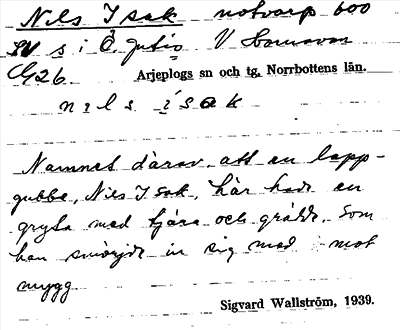 Nils Isak notvarp 600
SV s i Ö. Gutis V Hornavan
26. Arjeplogs sn och tg, Norrbottens län.
nils isak
Namnet därav att en lapp-
gubbe, Nils Isak, här hade en
gryta med tjära och grädde. Som
han smörjde in sig med mot
mygg
Sigvard Wallström, 1939.